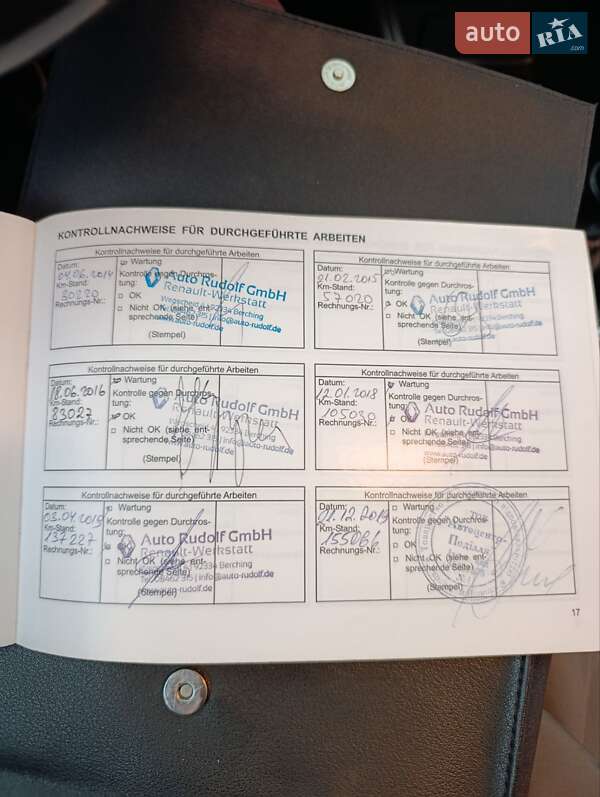 auto RIA.com
KONTROLLNACHWEISE FÜR DURCHGEFÜHRTE ARBEITEN
Kontrollnachweise für durchgeführte Arbeiten
Datum:
04.06.2014
Km-Stand:
30220
Rechnungs-Nr.:
Wartung
Kontrolle gegen Durchros-
tung:
OK
Nicht OK (siehe ent-
sprechende Seite)
(Stempel)
Auto Rudolf GmbH
Renault-Werkstatt
92334 Berching
info@auto-rudolf.de
Kontrollnachweise für durchgeführte Arbeiten
Datum:
01.02.2015
Km-Stand:
57020
Rechnungs-Nr.:
Wartung
Kontrolle gegen Durchros-
tung:
OK
Nicht OK (siehe ent-
sprechende Seite)
(Stempel)
Auto Rudolf GmbH
Renault-Werkstatt
Kontrollnachweise für durchgeführte Arbeiten
Datum:
18.06.2016
Km-Stand:
83027
Rechnungs-Nr.:
Wartung
Kontrolle gegen Durchros-
tung:
OK
Nicht OK (siehe ent-
sprechende Seite)
(Stempel)
Auto Rudolf GmbH
Renault-Werkstatt
Berching
info@auto-rudolf.de
Kontrollnachweise für durchgeführte Arbeiten
Datum:
12.01.2018
Km-Stand:
105030
Rechnungs-Nr.:
Wartung
Kontrolle gegen Durchros-
tung:
OK
Nicht OK (siehe ent-
sprechende Seite)
(Stempel)
Auto Rudolf GmbH
Renault-Werkstatt
info@auto-rudolf.de
Kontrollnachweise für durchgeführte Arbeiten
Datum:
03.04.2019
Km-Stand:
137227
Rechnungs-Nr.:
Wartung
Kontrolle gegen Durchros-
tung:
OK
Nicht OK (siehe ent-
sprechende Seite)
(Stempel)
Auto Rudolf GmbH
Renault-Werkstatt
92334 Berching
info@auto-rudolf.de
Kontrollnachweise für durchgeführte Arbeiten
Datum:
Km-Stand:
Rechnungs-Nr.:
Wartung
Kontrolle gegen Durchros-
tung:
OK
Nicht OK (siehe ent-
sprechende Seite)
(Stempel)
17